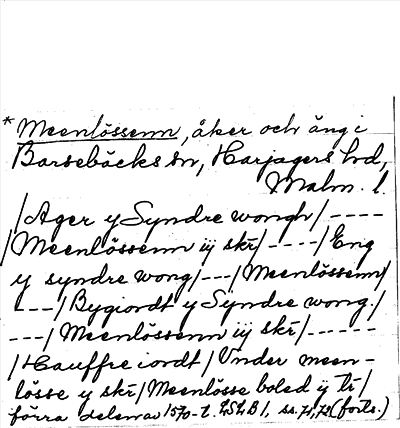 * Meenlössenn, åker och äng i
Barsebäcks sn, Harjagers hd,
Malm. l.
/Ager y Syndre wongh/ ----
/Meenlössenn iij skr/ ----/Eng
y syndre wong/---/Meenlössenn/
---/Bygiordt y Syndre wong./
---/Meenlössenn iij skr/-----
/Hauffre iordt/Under meen-
lösse y skr/Meenlösse boled ij tr/
förra delen av 1570-t. LSt, B1, ss. 71, 72 (forts.)